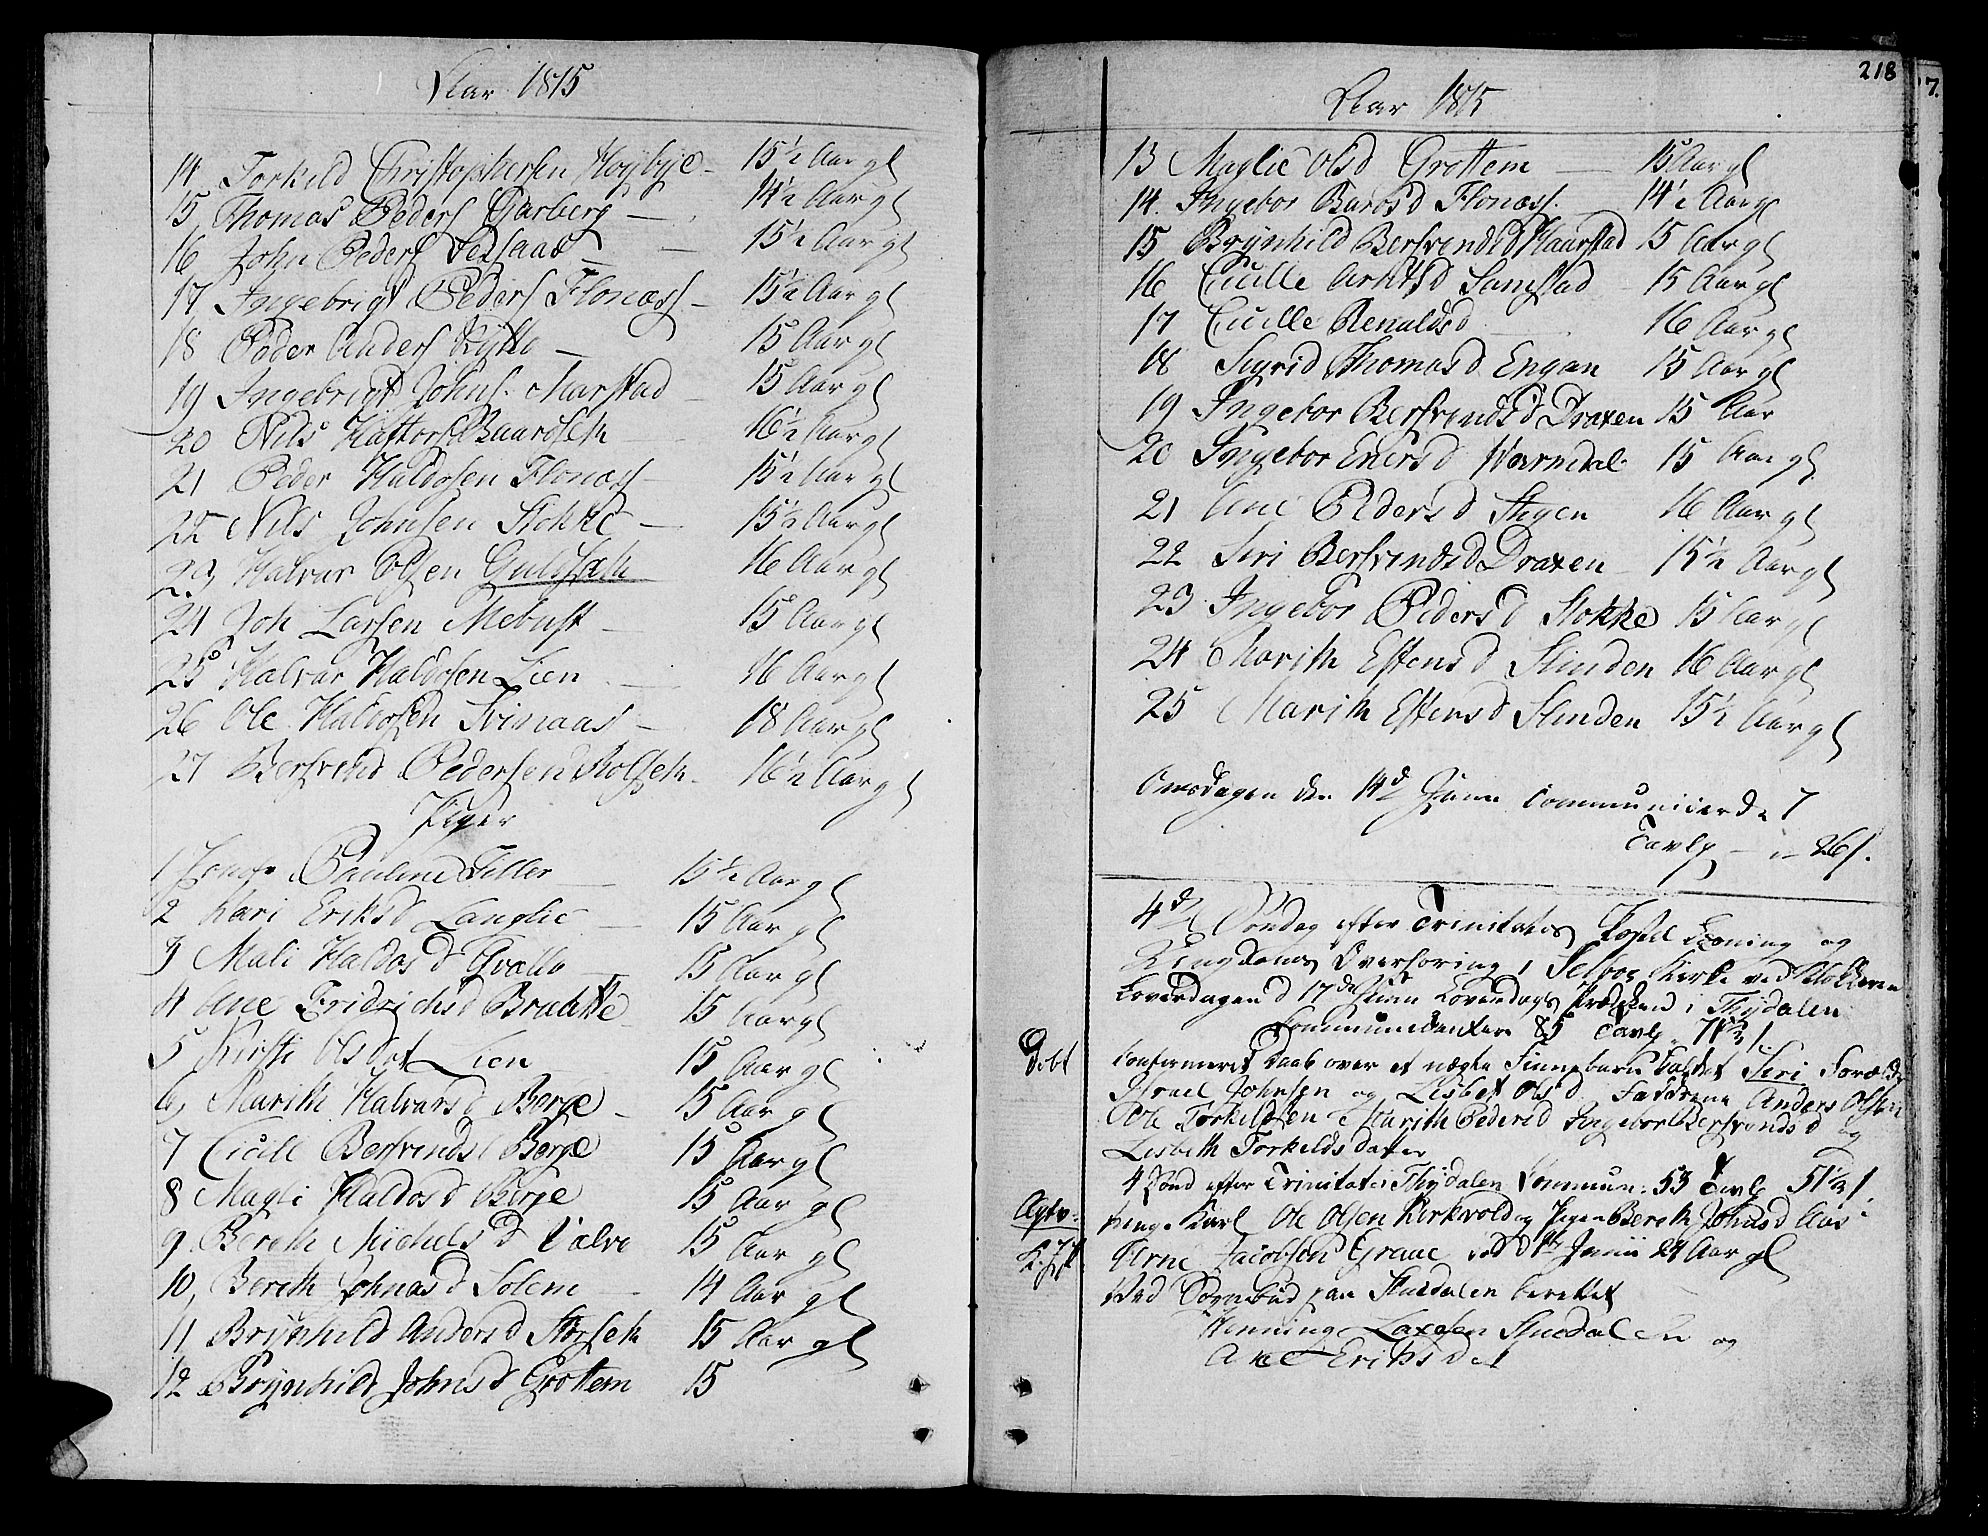 Aar 1815
14 Torkild Christophersen Høybÿe 15½ Aar gl
15 Thomas Peders Garberg 14½ Aar gl
16 John Peders Sessaas 15½ Aar gl
17 Ingebrigt Peders Flonæss 15½ Aar gl
18 Peder Anders Kÿllo 15 Aar gl
19 Ingebrigt Johns. Marstad 15 Aar gl
20 Nils Haftors Baardset 16½ Aar gl
21 Peder Haldosen Flonæss 15½ Aar gl
22 Nils Johnsen Stokke 15½ Aar gl
23 Halvar Olsen Gulset 16 Aar gl
24 Joh Larsen Mebust 15 Aar gl
25 Halvar Haldosen Lien 16 Aar gl
26 Ole Haldosen Svinaas 18 Aar gl
27 Bersvend Pedersen Rolset 16½ Aar gl
Piger
1 Jomfr Pauline Tiller 15½ Aar gl
2 Kari Eriksd Langlie 15 Aar gl
3 Mali Haldosd Qvællo 15 Aar gl
4 Ane Fridrichsd Bradtte 15 Aar gl
5 Kirsti Olsdot Lien 15 Aar gl
6 Marith Halvarsd Berge 15 Aar gl
7 Cicill Bersvendsd Berge 15 Aar gl
8 Magli Haldosd Berge 15 Aar gl
9 Bereth Michelsd Balve 15 Aar gl
10 Bereth Johnsd Solem 14 Aar gl
11 Brÿnhild Andersd Storset 15 Aar gl
12 Brÿnhild Johnsd Grottem 15
218
7.
Aar 1815
13 Maglie Olsd Grottem 15 Aar gl
14. Ingebor Barosd Flonæss. 14½ Aar gl
15 Brÿnhild Bersvendsd Haarstad 15 Aar gl
16 Cicille Arntsd Samstad 15 Aar gl
17 Cicille Renaldsd 16 Aar gl
18 Sigrid Thomasd Engan 15 Aar gl
19 Ingebor Bersvendsd Draxen 15 Aar
20 Ingebor Enersd Warmdal 15 Aar gl
21 Ane Pedersd Stigen 16 Aar gl
22 Siri Bersvendsd Draxen 15½ Aar gl
23 Ingebor Pedersd Stokke 15 Aar gl
24 Marith Estensd Slinden 16 Aar gl
25 Marith Estensd Slinden 15½ Aar gl
Onsdagen den 14d Juni Communicerede 7
Tavlp 26 s.
4d Søndag efter Trinitatis Kroning og
Kingdoms Overhøring i Selboe Kirke ved Klokkeren
Løverdagen d 17de Juni Løverdags Prædiken i Thÿdalen
Communicantere 85 Tavlp 71½ s.
Døbt Confirmeret Daab over et uægte Pigebarn kaldet Siri Foræld
Israel Johnsen og Lisbet Olsd. Faddrene Anders Olsen
Ole Torkildsen Marith Pedersd Ingebor Bersvendsd og
Lisbeth Torkildsdatter
4 Sønd efter Trinitatis Thÿdalen Commun: 53 Tavlp 51½ s.
Ægtv: Unge Karl Ole Olsen Kirkvold og Pigen Bereth Johnsd Aas
Arne Jacobsen Graae død d Juni 21 Aar gl
Ved Sognebud paa Stuedalen berettet
Henning Laxesen Stuedalen og
Ane Eriksdat